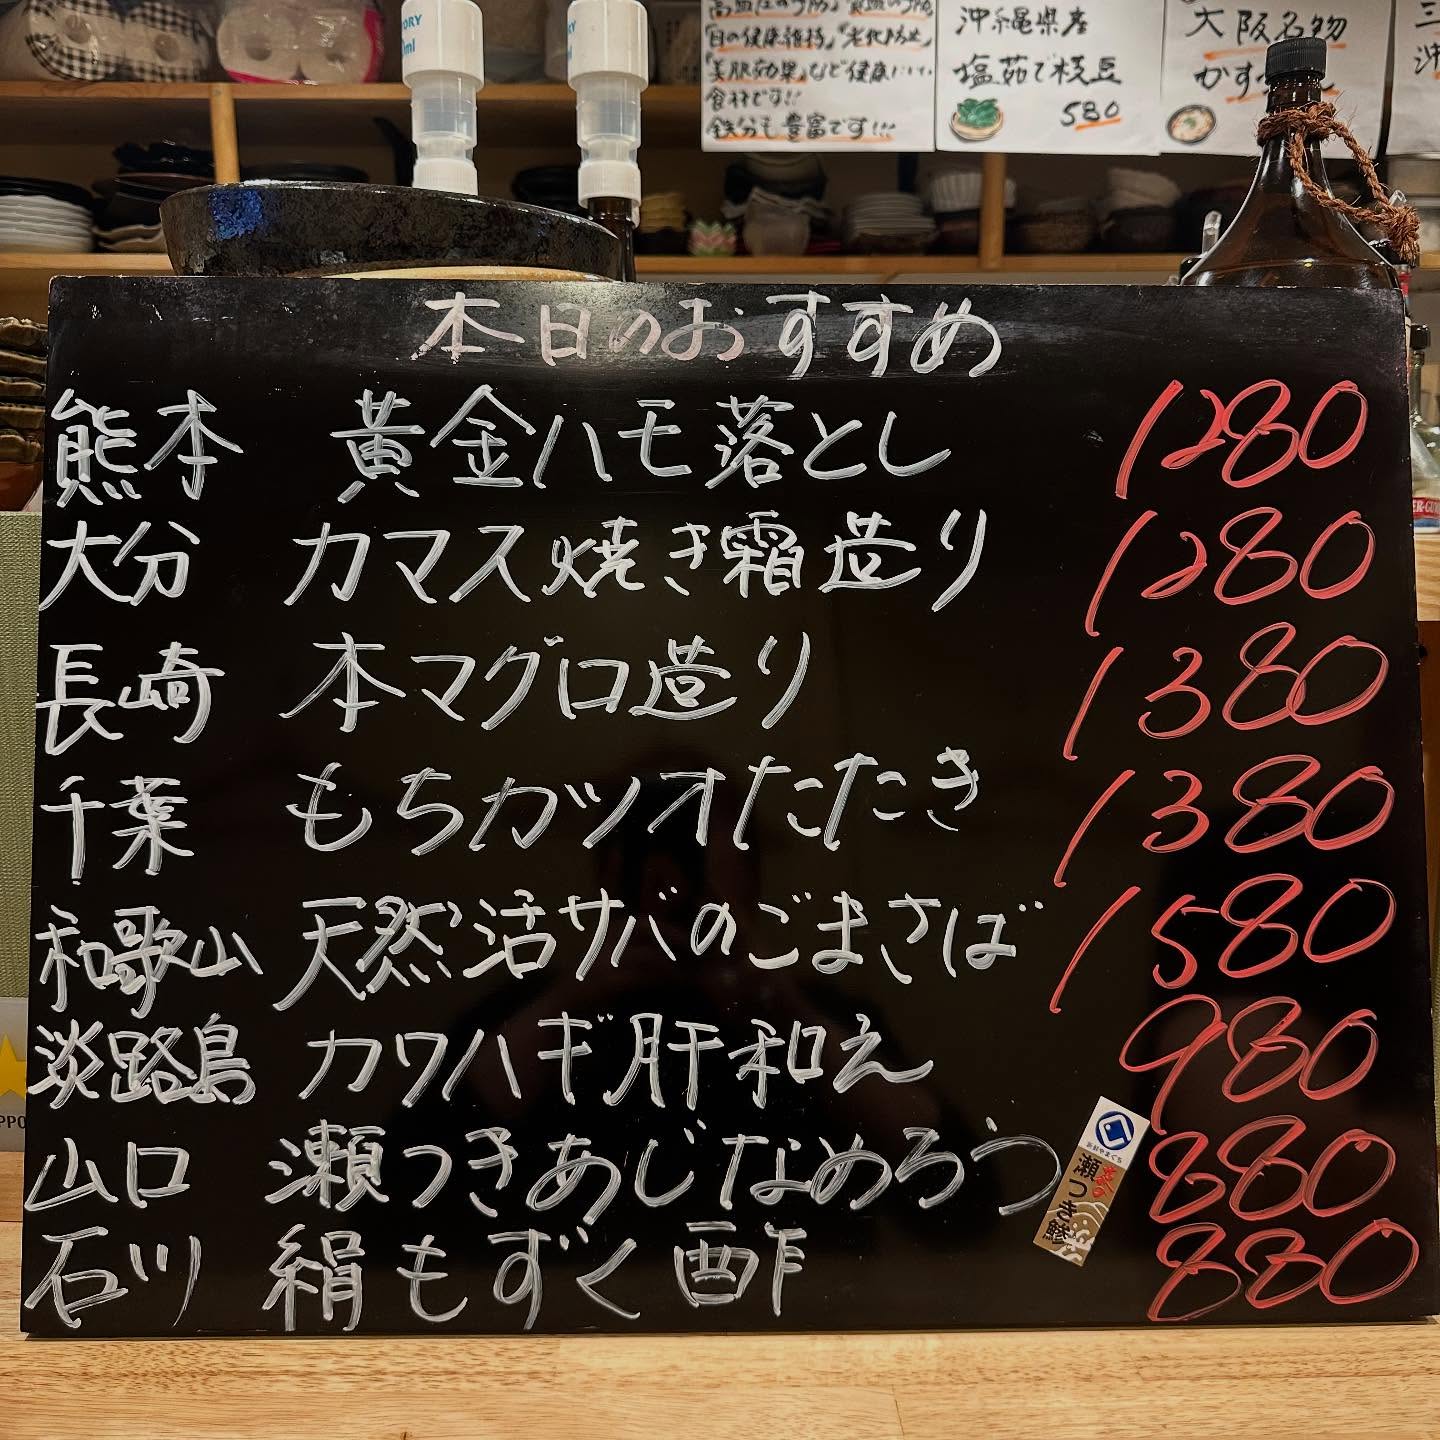 美肌効果」など健康にいい
食材です!!
鉄分も豊富です!!!
沖縄県産
塩茹で枝豆
580
大阪名物
本日のおすすめ
熊本 黄金ハモ落とし 1280
大分 カマス焼き霜造り 1280
長崎 本マグロ造り 1380
千葉 もちガツオたたき 1380
和歌山 天然活サバのごまさば 1580
淡路島 カワハギ肝和え 980
山口 瀬つきあじなめろう 880
瀬つき鯵
石川 絹もずく酢 880